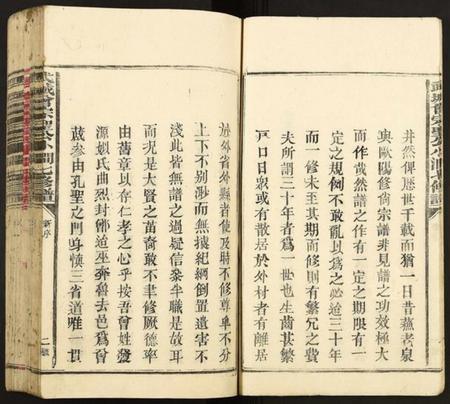 井然俾歷世千載而猶一日昔蘊者泉
與歐陽修尚宗譜非見譜之功效極大
而作哉然譜之作有一定之期限有一
定之規例不敢亂以爲之必逾三十年
而一修未至其期而修則有繁冗之費
夫所謂三十年者爲一世也生齒甚繁
戸口日衆或有散居於外村者有離居
於外省外縣者使及時不修尊卑不分
上下不别渺而無據紀綱倒置遺害不
淺此皆無譜之過疑信桒半職是故耳
而况是大賢之苗裔敢不聿修厥德率
由舊章以存仁孝之心乎按吾曾姓發
源姒氏曲烈封鄫迨巫奔魯去邑爲曾
蒇參由孔聖之門身懷三省道唯一貫
新序